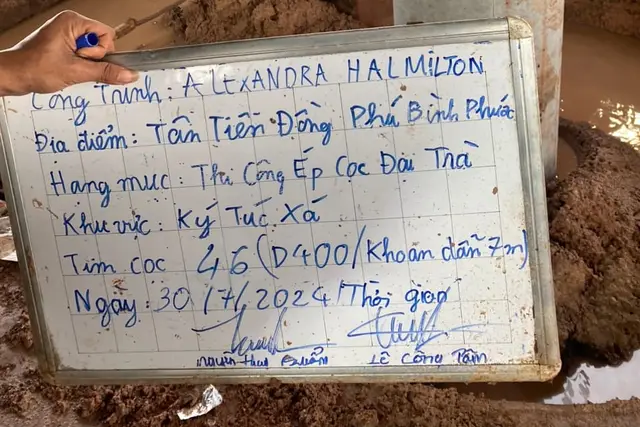 Công Trình: ALEXANDRA HALMILTON
Địa điểm: Tân Tiến Đồng Phú Bình Phước
Hạng mục: Thi Công Ép Cọc Đại Trà
Khu vực: Ký Túc Xá
Tim cọc 46 (D400/Khoan dẫn 7m)
Ngày: 30/7/2024/Thời gian
Lê Công